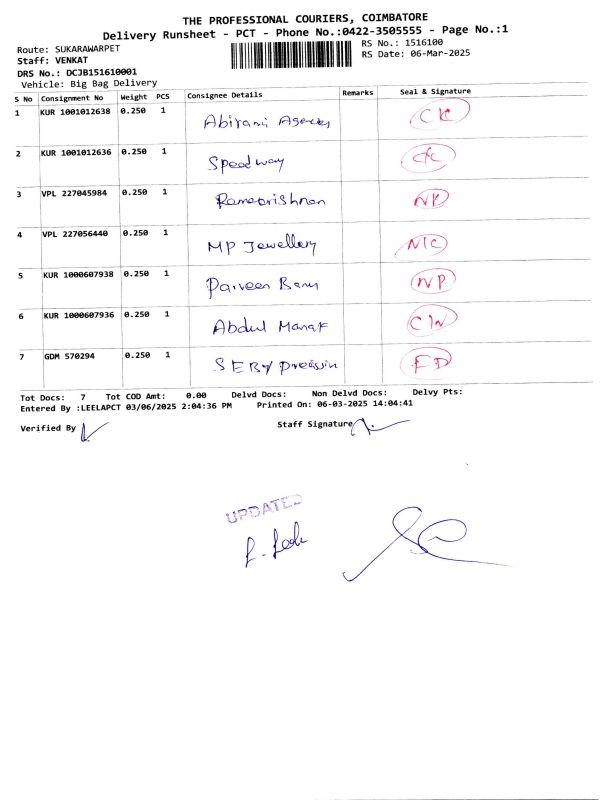 THE PROFESSIONAL COURIERS, COIMBATORE
Delivery Runsheet - PCT - Phone No.:0422-3505555 - Page No.:1
Route: SUKARAWARPET
RS No.: 1516100
Staff: VENKAT
RS Date: 06-Mar-2025
DRS No.: DCJB151610001
Vehicle: Big Bag Delivery
S No Consignment No Weight PCS Consignee Details Remarks Seal & Signature
1 KUR 1001012638 0.250 1 Abirami Agencies CK
2 KUR 1001012636 0.250 1 Speedway CK
3 VPL 227045984 0.250 1 NP
4 VPL 227056440 0.250 1 MP Jewellery N/C
5 KUR 1000607938 0.250 1 Parveen Banu NP
6 KUR 1000607936 0.250 1 Abdul Manaf
7 GDM 570294 0.250 1 SEBY FD
Tot Docs: 7 Tot COD Amt: 0.00 Delvd Docs: Non Delvd Docs: Delvy Pts:
Entered By :LEELAPCT 03/06/2025 2:04:36 PM Printed On: 06-03-2025 14:04:41
Verified By Staff Signature
UPDATED